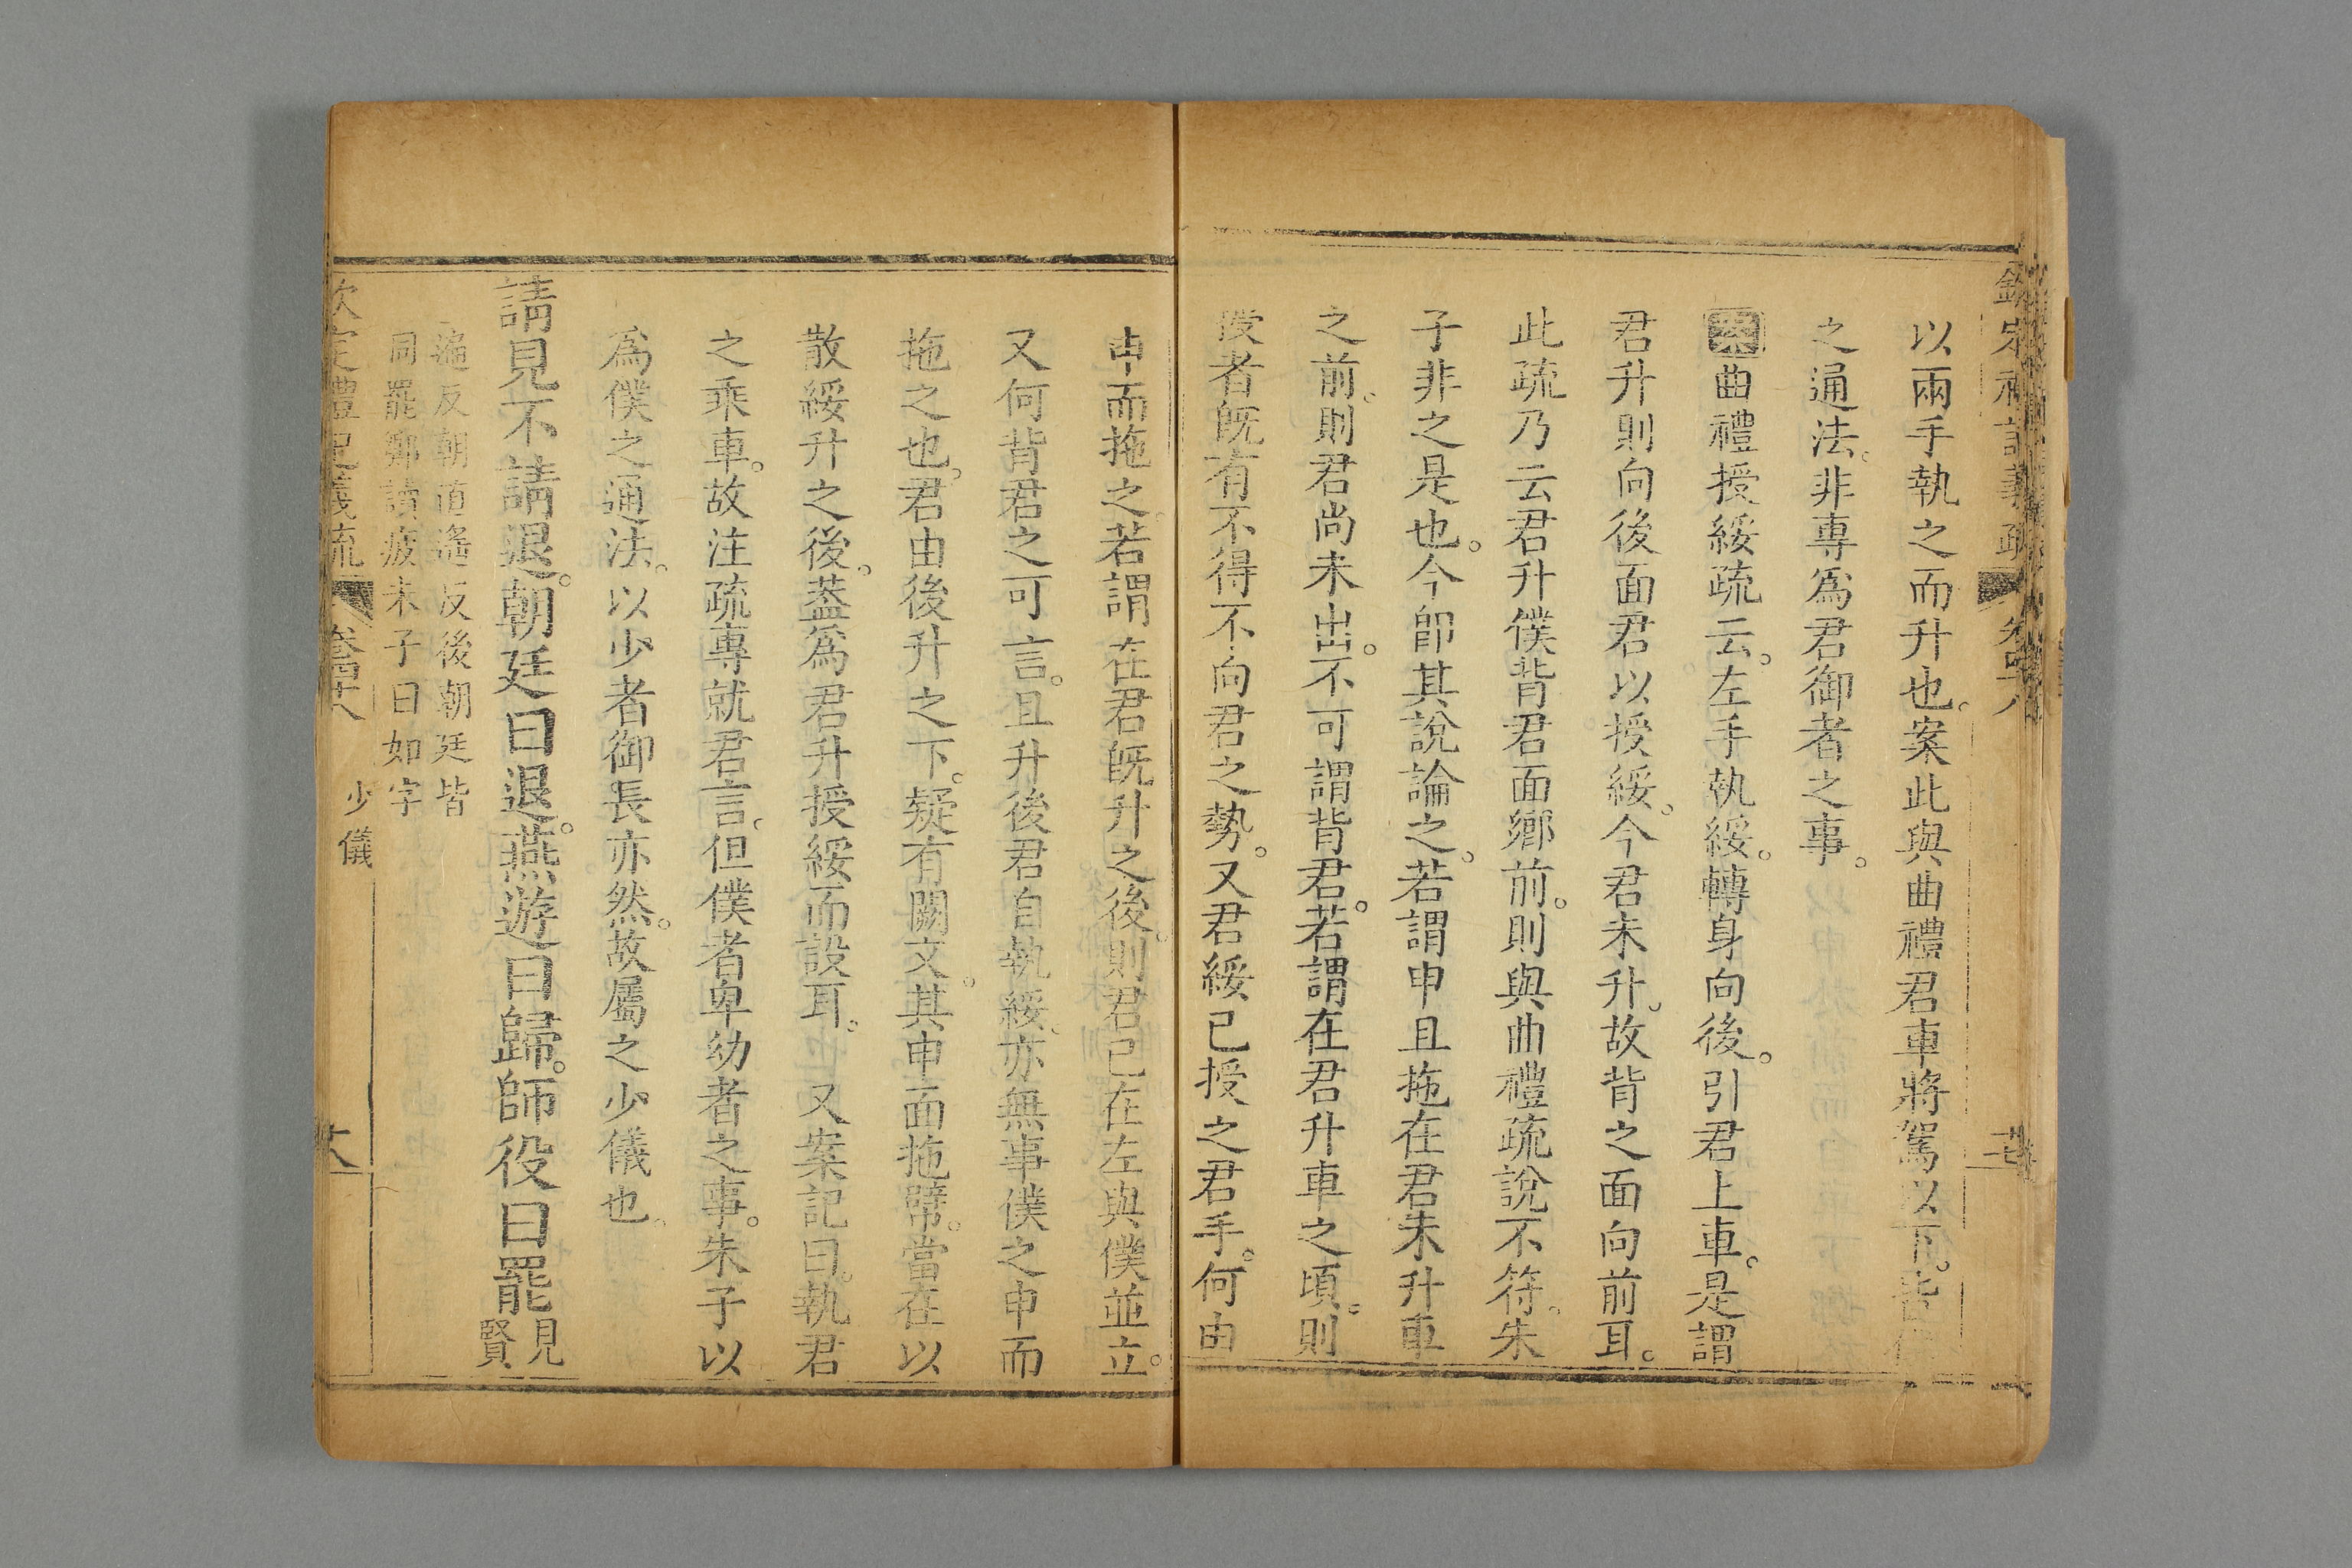 以兩手執之而升也。案此與曲禮君車將駕以下。皆
之通法。非專爲君御者之事。
曲禮授綏疏云。左手執綏。轉身向後。引君上車。是謂
君升則向後面君以授綏。今君未升。故背之面向前耳。
此疏乃云君升僕背君面鄉前。則與曲禮疏說不符。朱
子非之是也。今卽其說論之。若謂申且拖在君未升車
之前。則君尚未出。不可謂背君。若謂在君升車之頃。則
授者旣有不得不向君之勢。又君綏已授之君手。何由
申而拖之。若謂在君旣升之後。則君已在左與僕並立。
又何背君之可言。且升後君自執綏。亦無事僕之申而
拖之也。君由後升之下。疑有闕文。其申面拖幦。當在以
散綏升之後。葢爲君升授綏而設耳。又案記曰。執君
之乘車。故注疏專就君言。但僕者卑幼者之事。朱子以
爲僕之通法。以少者御長亦然。故屬之少儀也。
請見不請退。朝廷曰退。燕遊曰歸。師役曰罷
見
賢
遍反朝直遙反後朝廷皆
同罷鄭讀疲朱子曰如字
少儀